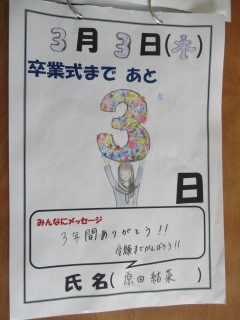 3月3日(木)
卒業式まで あと
3
日
みんなにメッセージ
3年間ありがとう!!
受験までがんばろう!!
氏名(原田 結菜)